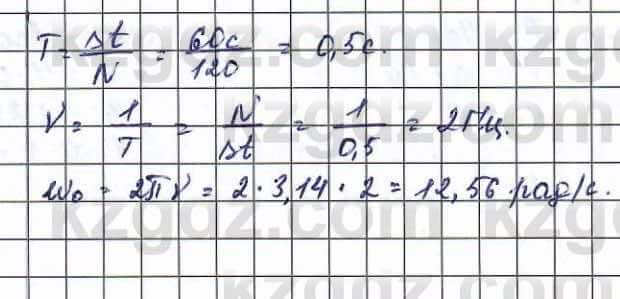 T = Δt/N = 60с/120 = 0,5с.
ν = 1/T = N/Δt = 1/0,5 = 2Гц.
ω₀ = 2πν = 2·3,14·2 = 12,56 рад/с.
kzgdz.com